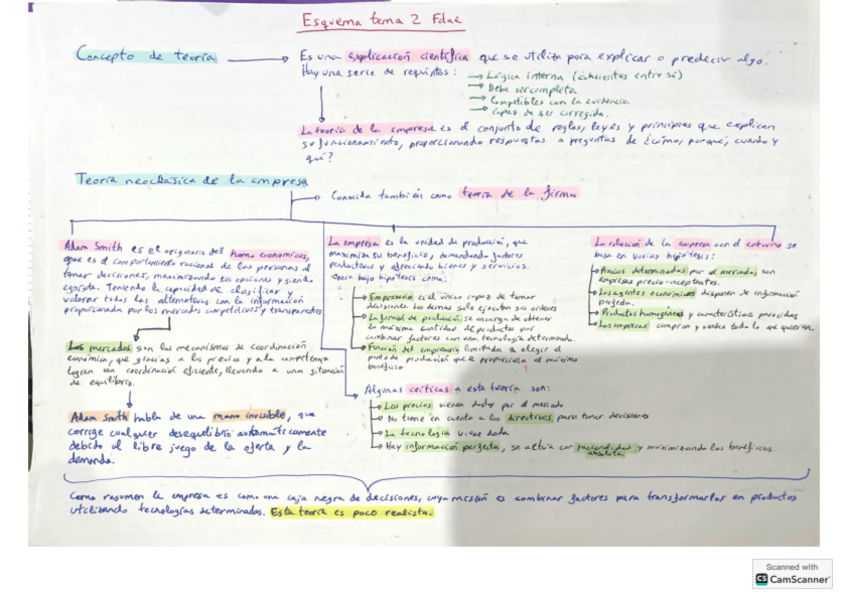 Esquema tema 2 Fdae
Concepto de teoría
Es una explicación científica que se utiliza para explicar o predecir algo.
Hay una serie de requisitos:
Lógica interna (coherentes entre sí)
Debe ser completa
Competibles con la evidencia
Capaz de ser corregida.
La teoría de la empresa es el conjunto de reglas, leyes y principios que explican
su funcionamiento, proporcionando respuestas a preguntas de ¿cómo, porqué, cuando y
qué?
Teoría neoclasica de la empresa
Conocida también como teoría de la firma
Adam Smith es el originario del homo economicus,
que es el comportamiento racional de las personas al
tomar decisiones, maximizando sus opciones y siendo
egoista. Teniendo la capacidad de clasificar y
valorar todas las alternativas con la información
proporcionada por los mercados competitivos y transparentes
Los mercados son los mecanismos de coordinación
económica, que gracias a los precios y a la competencia
logran una coordinación eficiente, llevando a una situación
de equilibrio.
Adam Smith habla de una mano invisible, que
corrige cualquier desequilibrio automáticamente
debido al libre juego de la oferta y la
demanda.
La empresa es la unidad de producción, que
maximiza su beneficio, demandando factores
productivos y ofreciendo bienes y servicios.
bajo hipótesis como:
Empresario es el único capaz de tomar
decisiones. Los demas solo ejecutan sus ordenes
La función de producción se encarga de obtener
la máxima cantidad de productos por
combinar factores con una tecnología determinada.
Función del empresario limitada a elegir el
de producción que le proporciona el máximo
beneficio
Algunas críticas a esta teoría son:
Los precios vienen dados por el mercado
No tiene en cuenta a los directivos para tomar decisiones
La tecnología viene dada
Hay información perfecta, se actúa con racionalidad y maximizando los beneficios.
absoluta
La relación de la empresa con el entorno se
basa en varias hipótesis:
Precios determinados por el mercado son
empresas precio-aceptantes.
Los agentes económicos disponen de información
perfecta.
Productos homogéneos y características parecidas
Las empresas compran y venden todo lo que quieran.
Como resumen la empresa es como una caja negra de decisiones, cuya misión es combinar factores para transformarlos en productos
utilizando tecnologías determinadas. Esta teoría es poco realista.
Scanned with
CS CamScanner